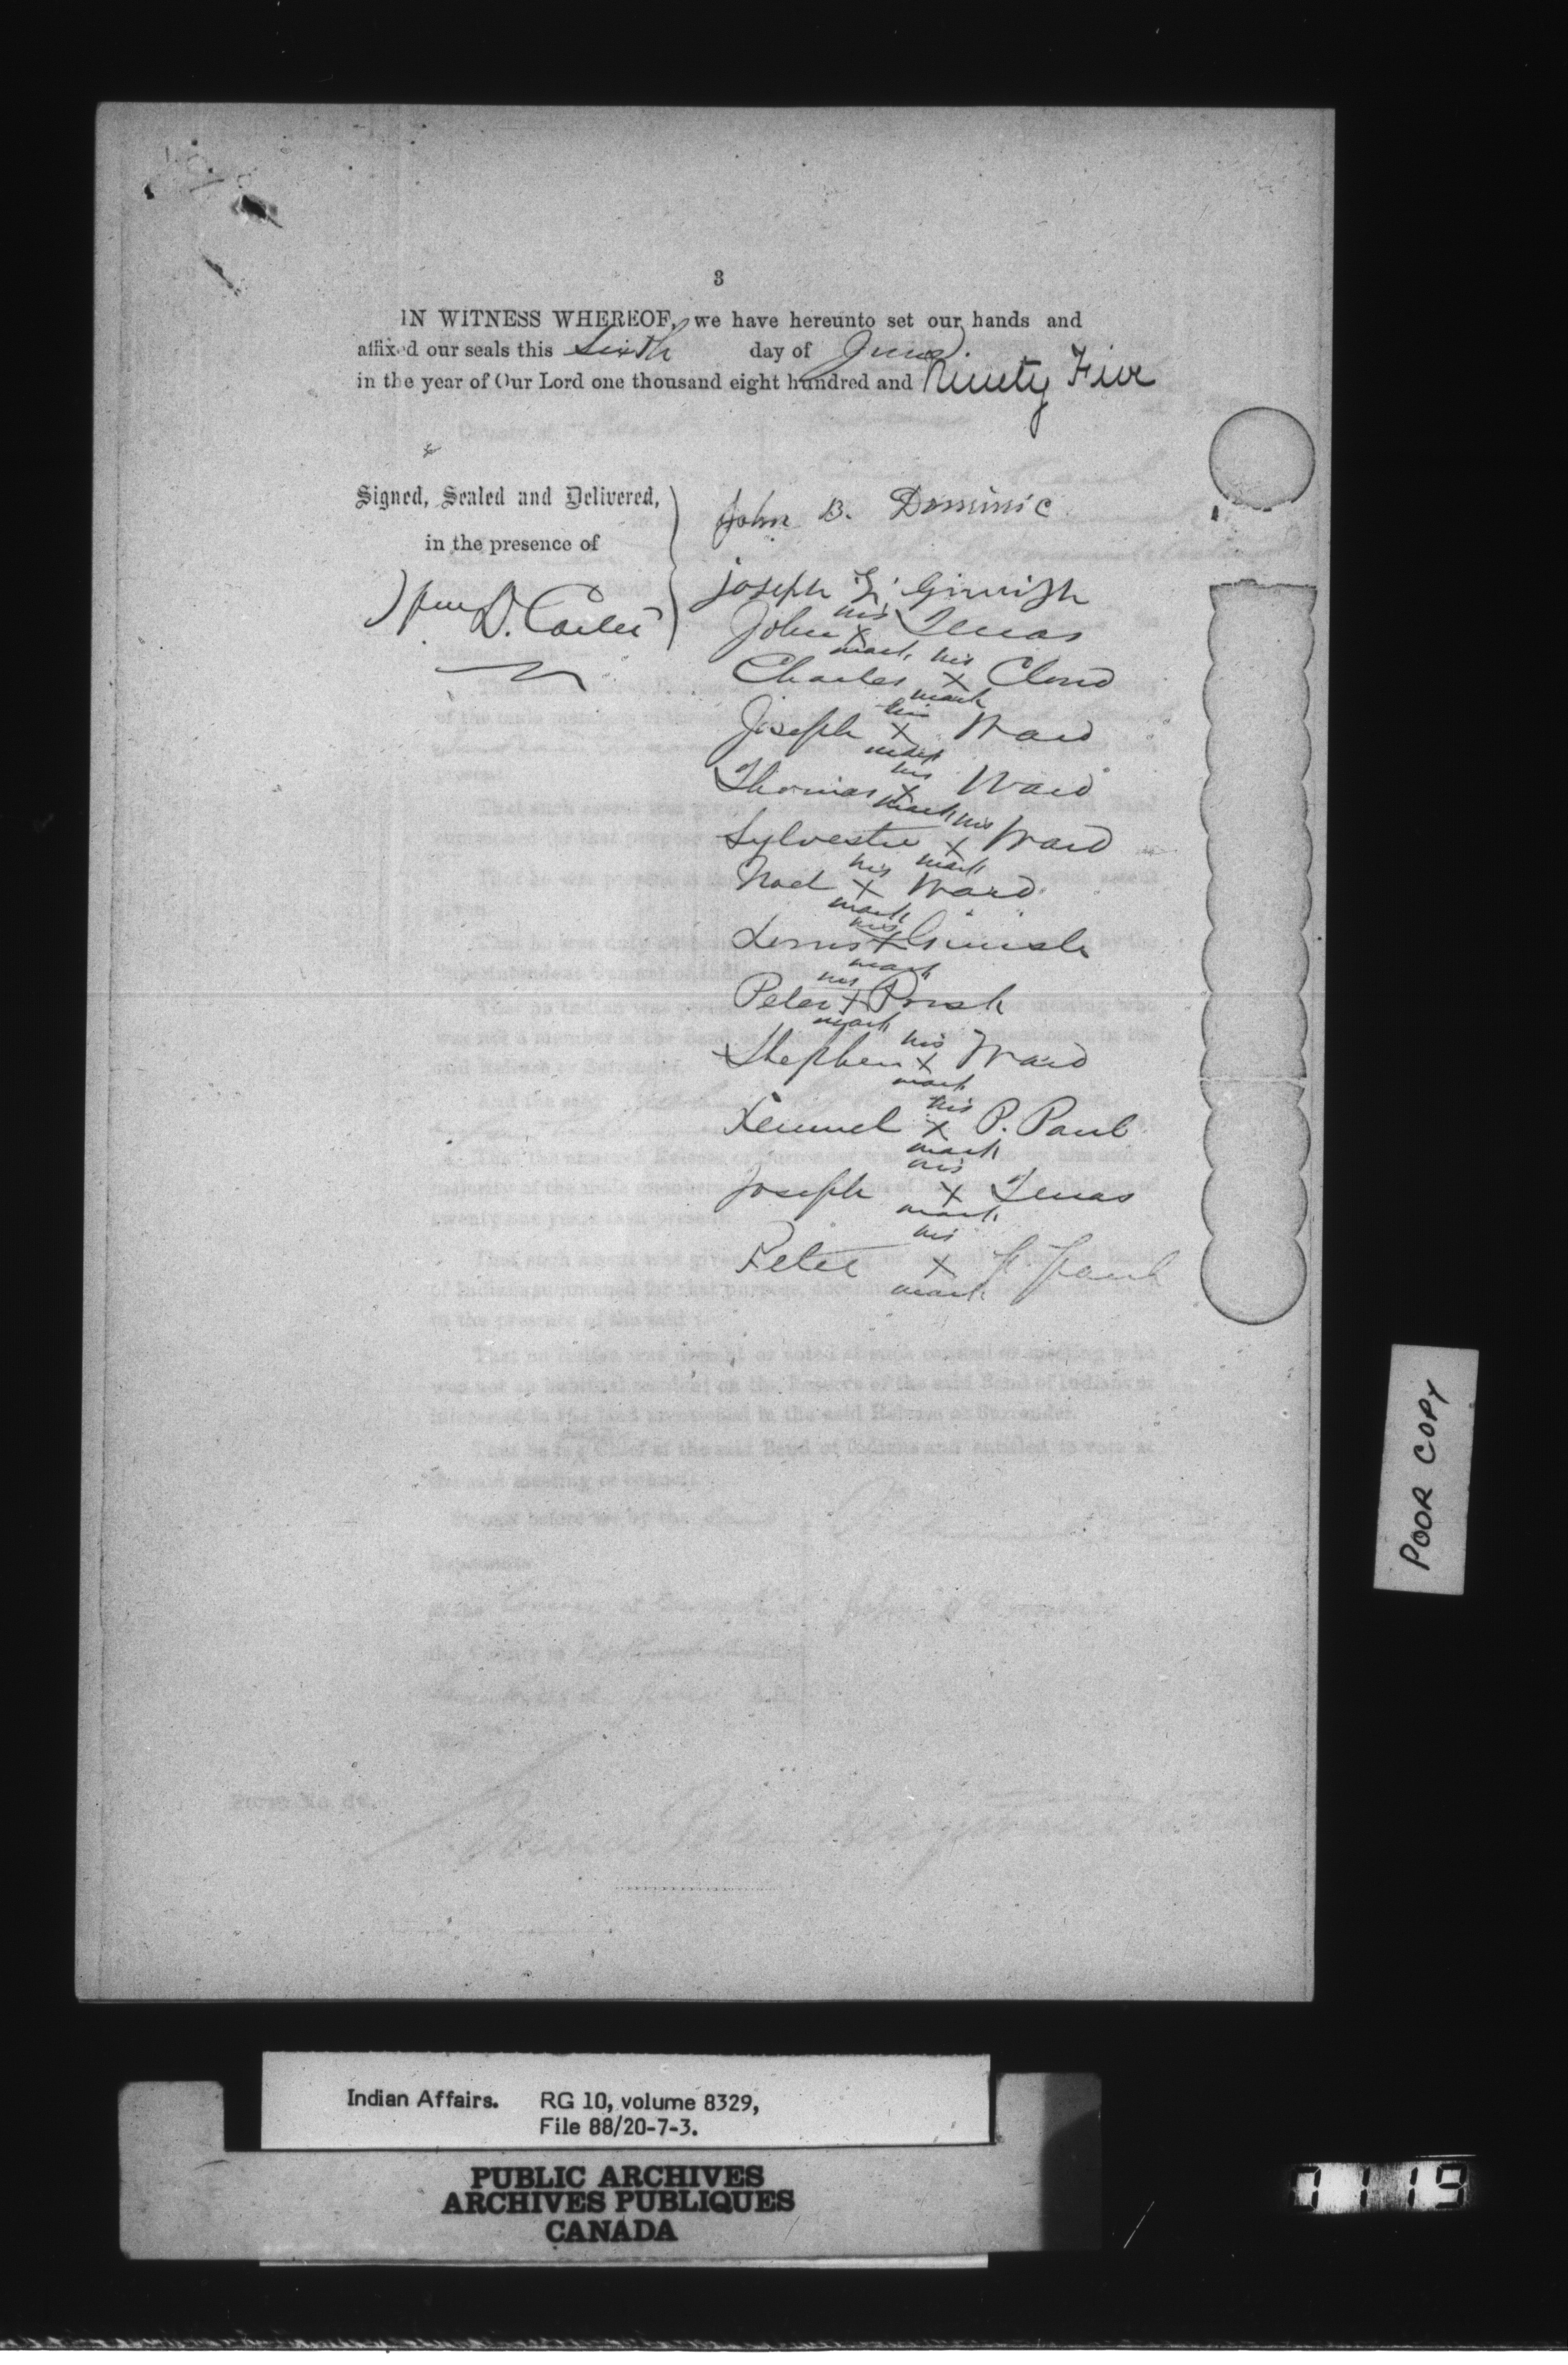 3
IN WITNESS WHEREOF, we have hereunto set our hands and
affixed our seals this Sixth day of June.
in the year of Our Lord one thousand eight hundred and Ninety Five
Signed, Sealed and Delivered,
in the presence of
Wm D. Carter
John B. Dominic
Joseph Ginnish
his
John X Tenas
mark
his
Charles X Cloud
mark
his
Joseph X Ward
mark
his
Thomas X Ward
mark
his
Sylvester X Ward
mark
his
Noel X Ward
mark
his
X Ginnish
mark
his
Peter X
mark
his
Stephen X Ward
mark
his
Lemuel X P. Paul
mark
his
Joseph X Tenas
mark
his
Peter X P Paul
mark
POOR COPY
Indian Affairs. RG 10, volume 8329,
File 88/20-7-3.
PUBLIC ARCHIVES
ARCHIVES PUBLIQUES
CANADA